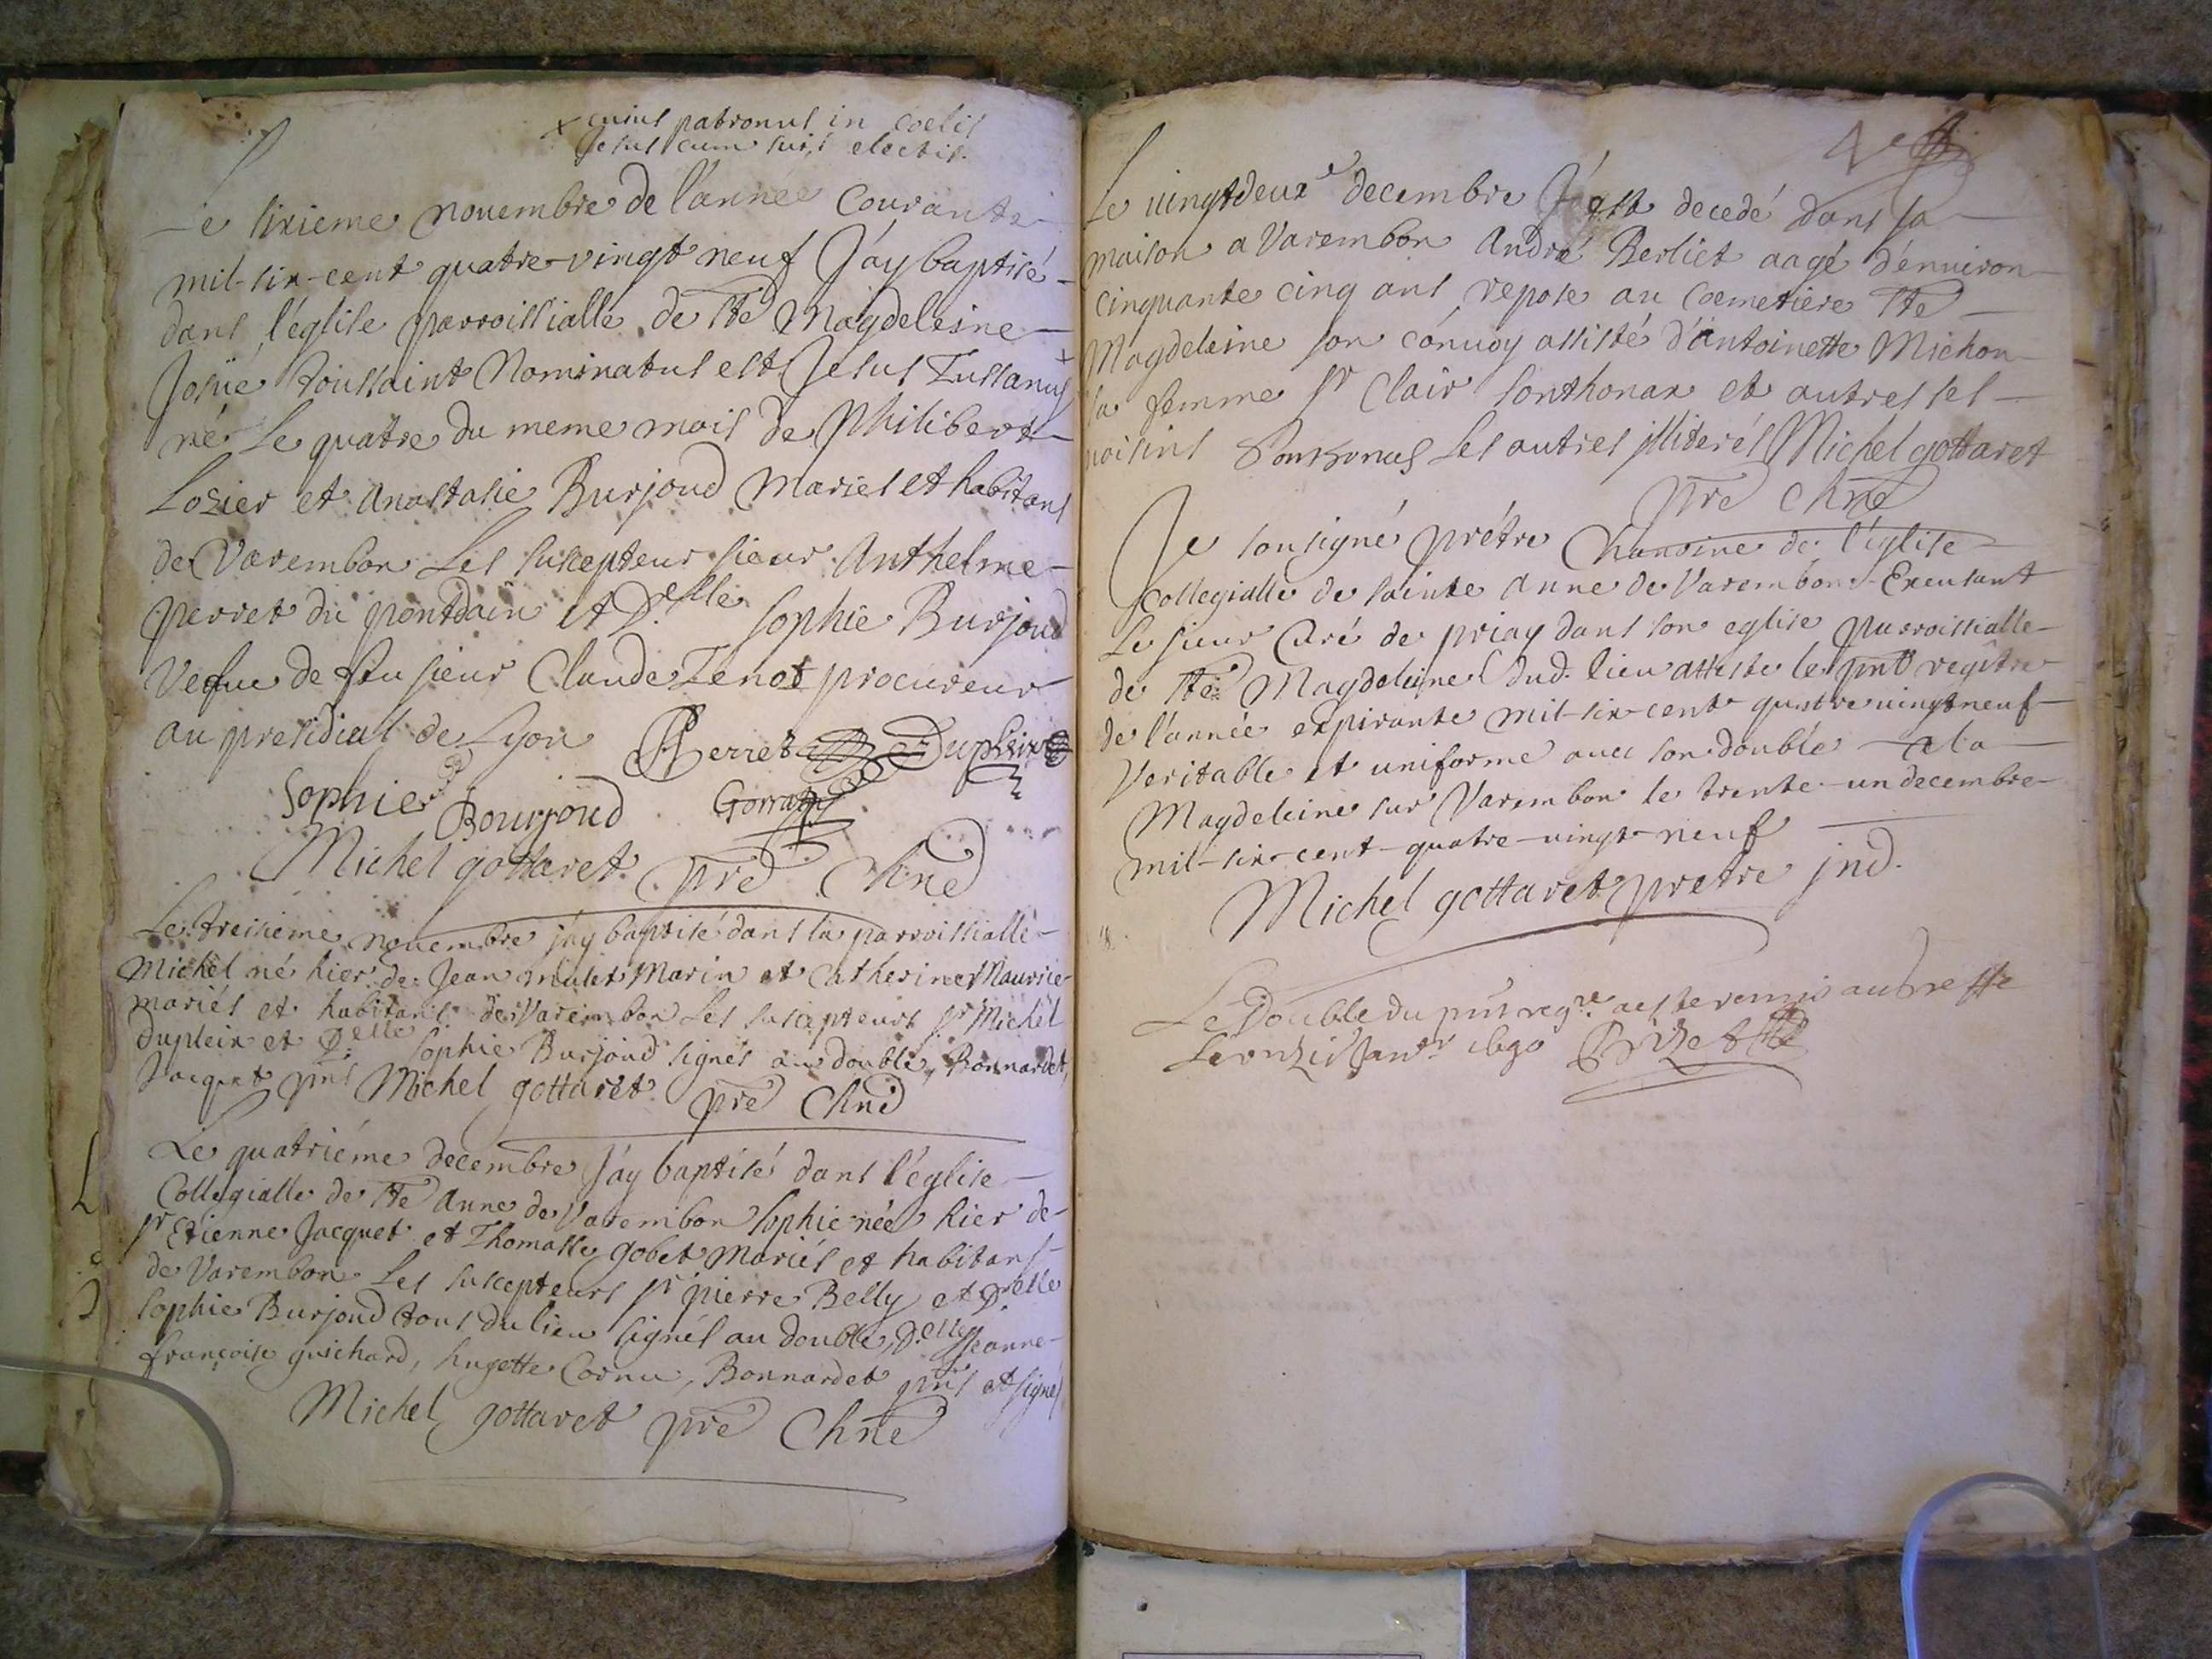 x cuius patronus in coelis
Jesus cum suis electis.
Le sixieme nouembre de l'année courante
mil-six-cent quatre-vingt neuf J'ay baptisé
dans l'eglise parroissialle de Ste Magdeleine
Josüé toussaint Nominatus est Jesus Tussanus x
né Le quatre du meme mois de philibert
Losier et anastasie Burjoud mariés et habitans
de Varembon Les suscepteur sieur Anthelme
perret du pontdain et D.elle sophie Burjoud
Vefue de feu sieur Claude Tenot procureur
au presidial de Lyon Perret Dupleix
Sophie Bourjoud
Michel gottaret pre Chne
Le treisieme nouembre j'ay baptisé dans la parroissialle
Michel né hier de Jean mulet Marin et Catherine Maurice
mariés et habitans de Varembon Les suscepteurs sr Michel
dupleix et D.elle sophie Burjoud signés au double, Bonnardet,
Jacquet pns Michel gottaret pre Chne
Le quatriéme decembre J'ay baptisé dans l'église
Collegialle de Ste Anne de Varembon sophie née hier de
sr Etienne Jacquet et Thomasse gobet Mariés et habitans
de Varembon Les suscepteurs sr pierre Belly et D.elle
sophie Burjoud tous du lieu signés au double, D.elle Jeanne
françoise guichard, hugette Cornu, Bonnardet pns et signés
Michel gottaret pre Chne
Le uingtdeuxe decembre est decedé dans sa
maison a Varembon André Berliet aagé d'enuiron
cinquante cinq ans repose au Coemetiere Ste
Magdeleine son conuoy assisté d'antoinette Michon
sa femme sr Clair sonthonax et autres ses
uoisins Sontonas Les autres jlliterés Michel gottaret
pre Chne
Je sousigné prétre Chanoine de l'église
Collegialle de sainte Anne de Varembon Excusant
Le sieur Curé de priay dans son eglise parroissialle
de Ste Magdeleine dud. lieu atteste le pnt registre
de l'année expirante mil-six-cent quatre uingt neuf
Veritable et uniforme auec son double a la
Magdeleine sur Varembon le trente-un decembre
mil-six-cent-quatre-uingt-neuf
Michel gottaret pretre jnd.
Le Double du pnt regre aeste remis au greffe
Le onzie Janr 1690